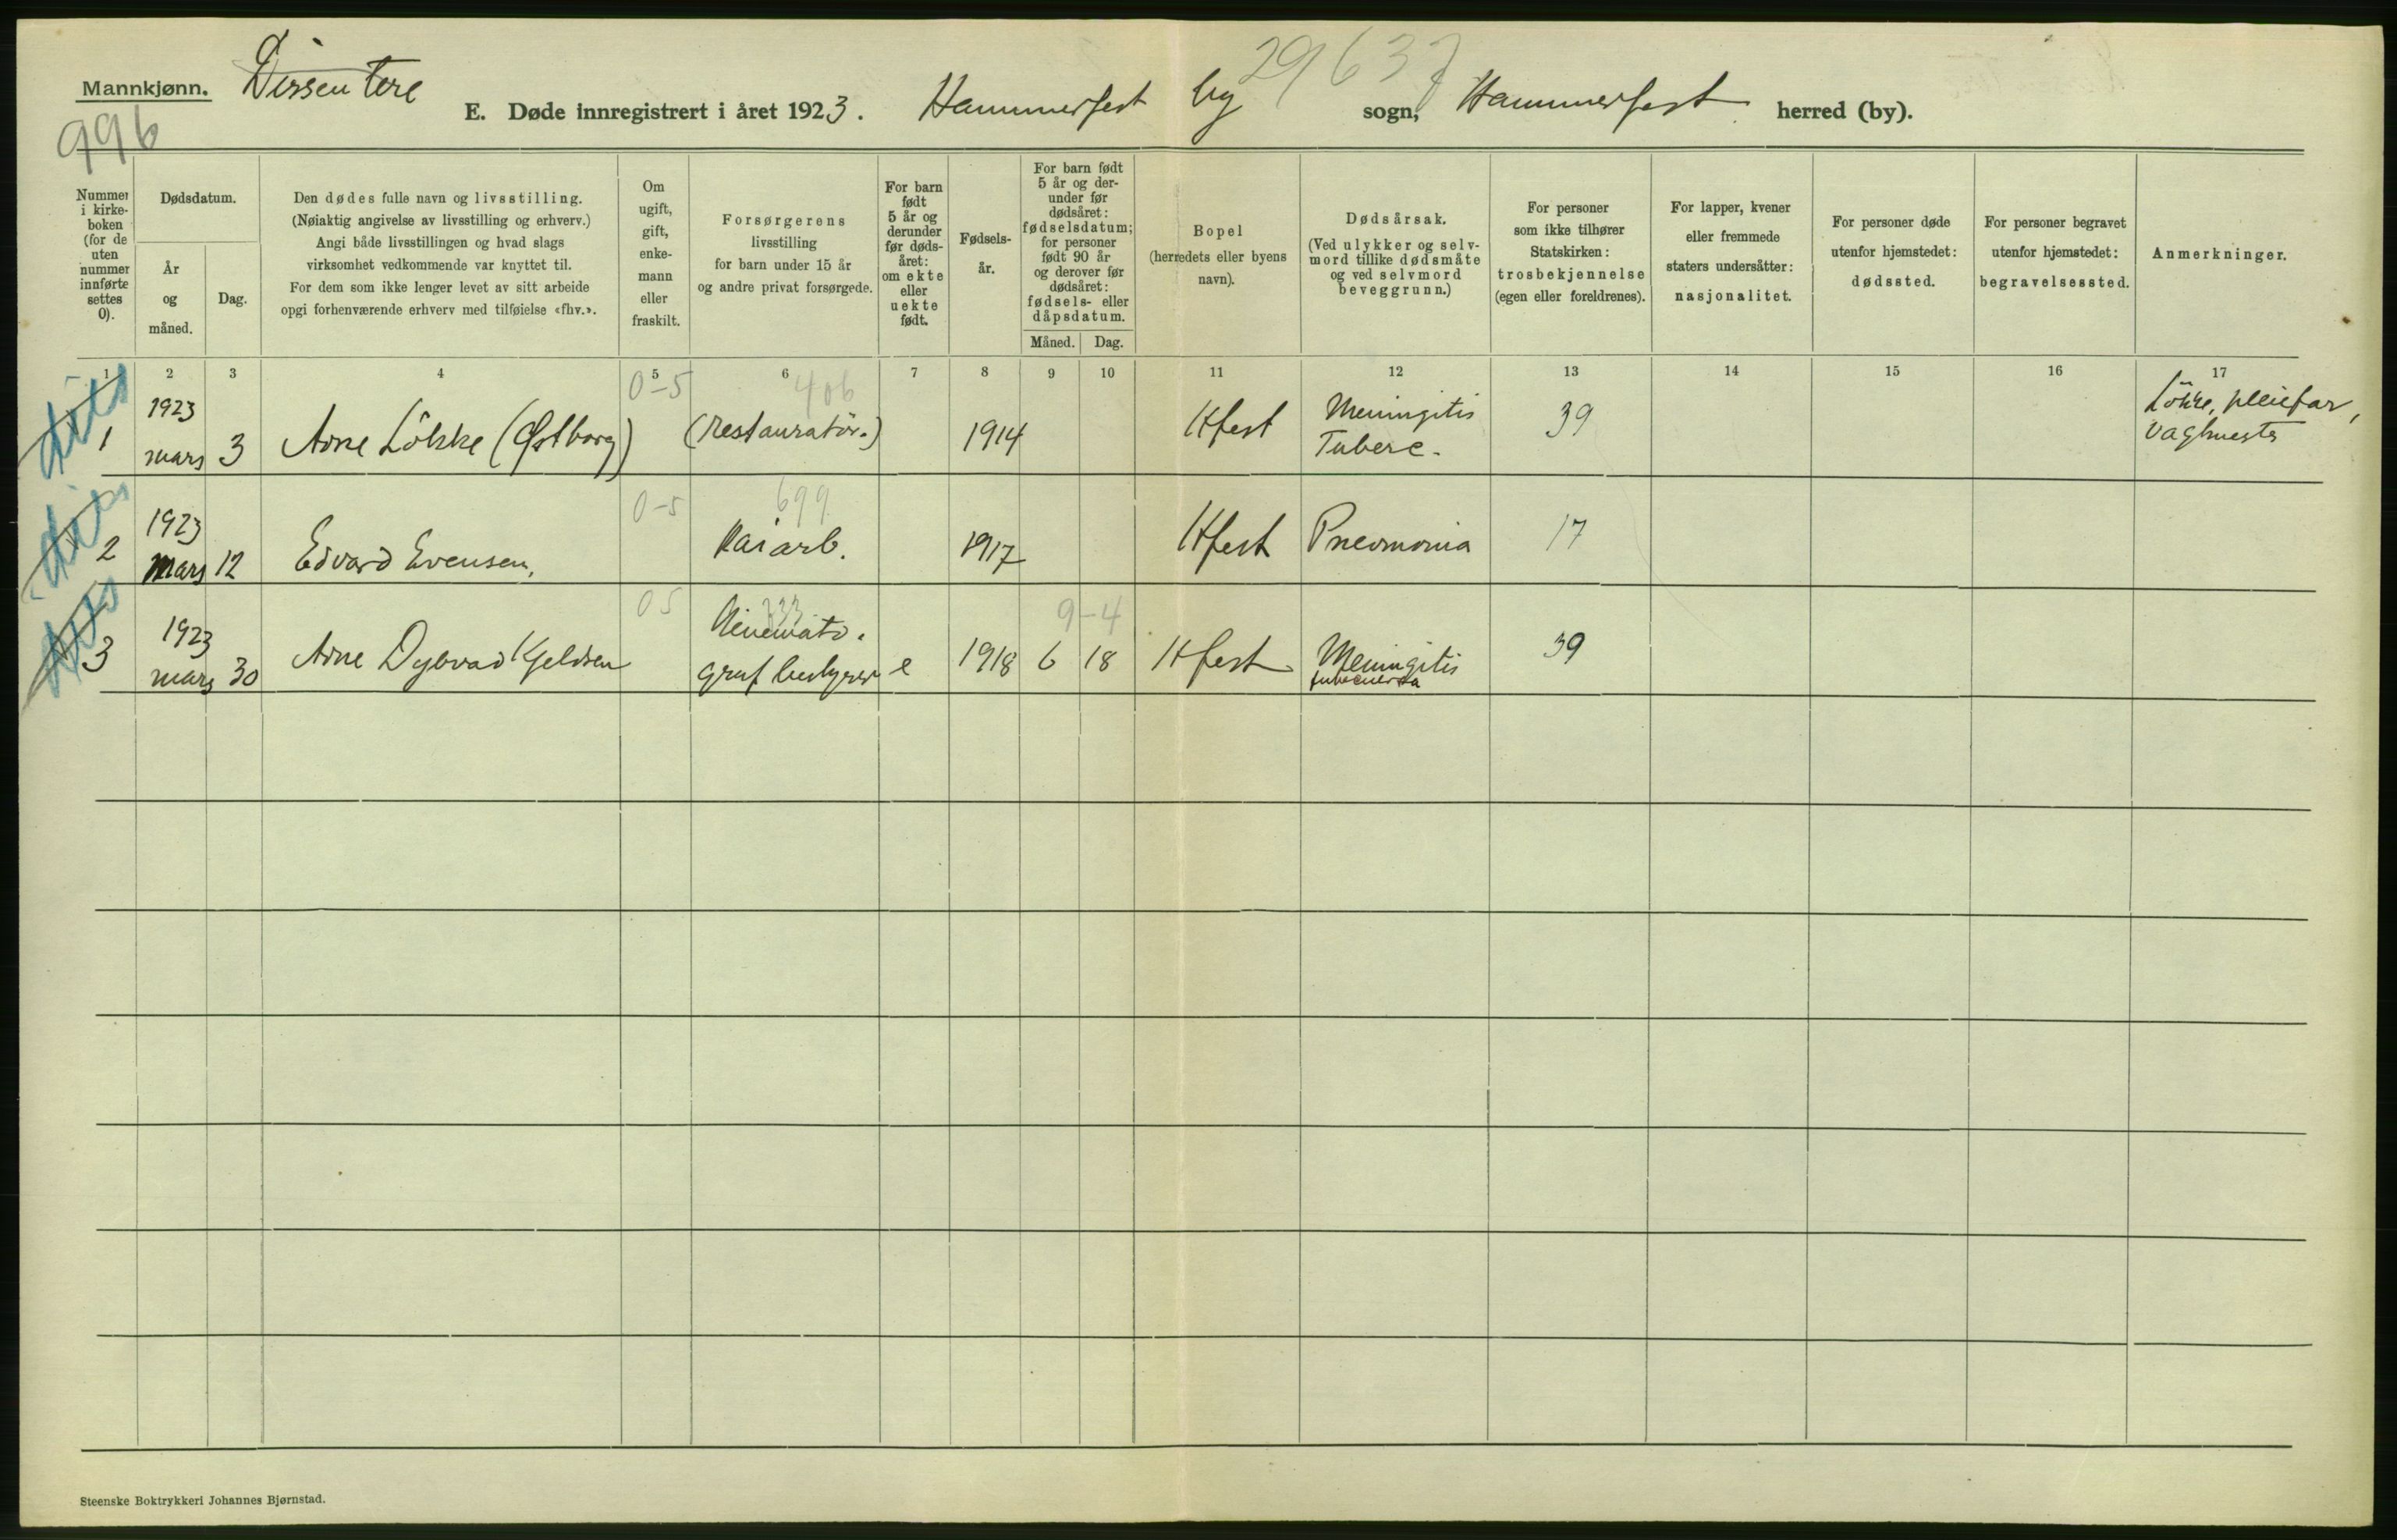 Mannkjønn. Dissentere
E. Døde innregistrert i året 1923. Hammerfest by sogn, Hammerfest herred (by).
29637
996
Nummer i kirke-boken (for de uten nummer innførte settes 0).
Dødsdatum.
År og måned.
Dag.
Den dødes fulle navn og livsstilling.
(Nøiaktig angivelse av livsstilling og erhverv.)
Angi både livsstillingen og hvad slags
virksomhet vedkommende var knyttet til.
For dem som ikke lenger levet av sitt arbeide
opgi forhenværende erhverv med tilføielse «fhv.».
Om ugift, gift, enke-mann eller fraskilt.
Forsørgerens
livsstilling
for barn under 15 år
og andre privat forsørgede.
For barn født 5 år og derunder før døds-året: om ekte eller uekte født.
Fødsels-år.
For barn født 5 år og der-under før dødsåret: fødselsdatum; for personer født 90 år og derover før dødsåret: fødsels- eller dåpsdatum.
Måned. Dag.
Bopel
(herredets eller byens
navn).
Dødsårsak.
(Ved ulykker og selv-
mord tillike dødsmåte
og ved selvmord
beveggrunn.)
For personer
som ikke tilhører
Statskirken:
trosbekjennelse
(egen eller foreldrenes).
For lapper, kvener
eller fremmede
staters undersåtter:
nasjonalitet.
For personer døde
utenfor hjemstedet:
dødssted.
For personer begravet
utenfor hjemstedet:
begravelsessted.
Anmerkninger.
1 2 3 4 5 6 7 8 9 10 11 12 13 14 15 16 17
diss
0-5 406
1 1923 mars 3 Arne Løkke (Østborg) (restauratör.) 1914 Hfest Meningitis Tuberc. 39 Løkke, pleiefar,
diss
0-5 699
2 1923 mars 12 Edvard Evensen, Kaiarb. 1917 Hfest Pneomonia 17
diss
05 333 9-4
3 1923 mars 30 Arne Dybvad Kjeldsen Kinemato. graf bestyrer e 1918 6 18 Hfest Meningitis 39
Steenske Boktrykkeri Johannes Bjørnstad.